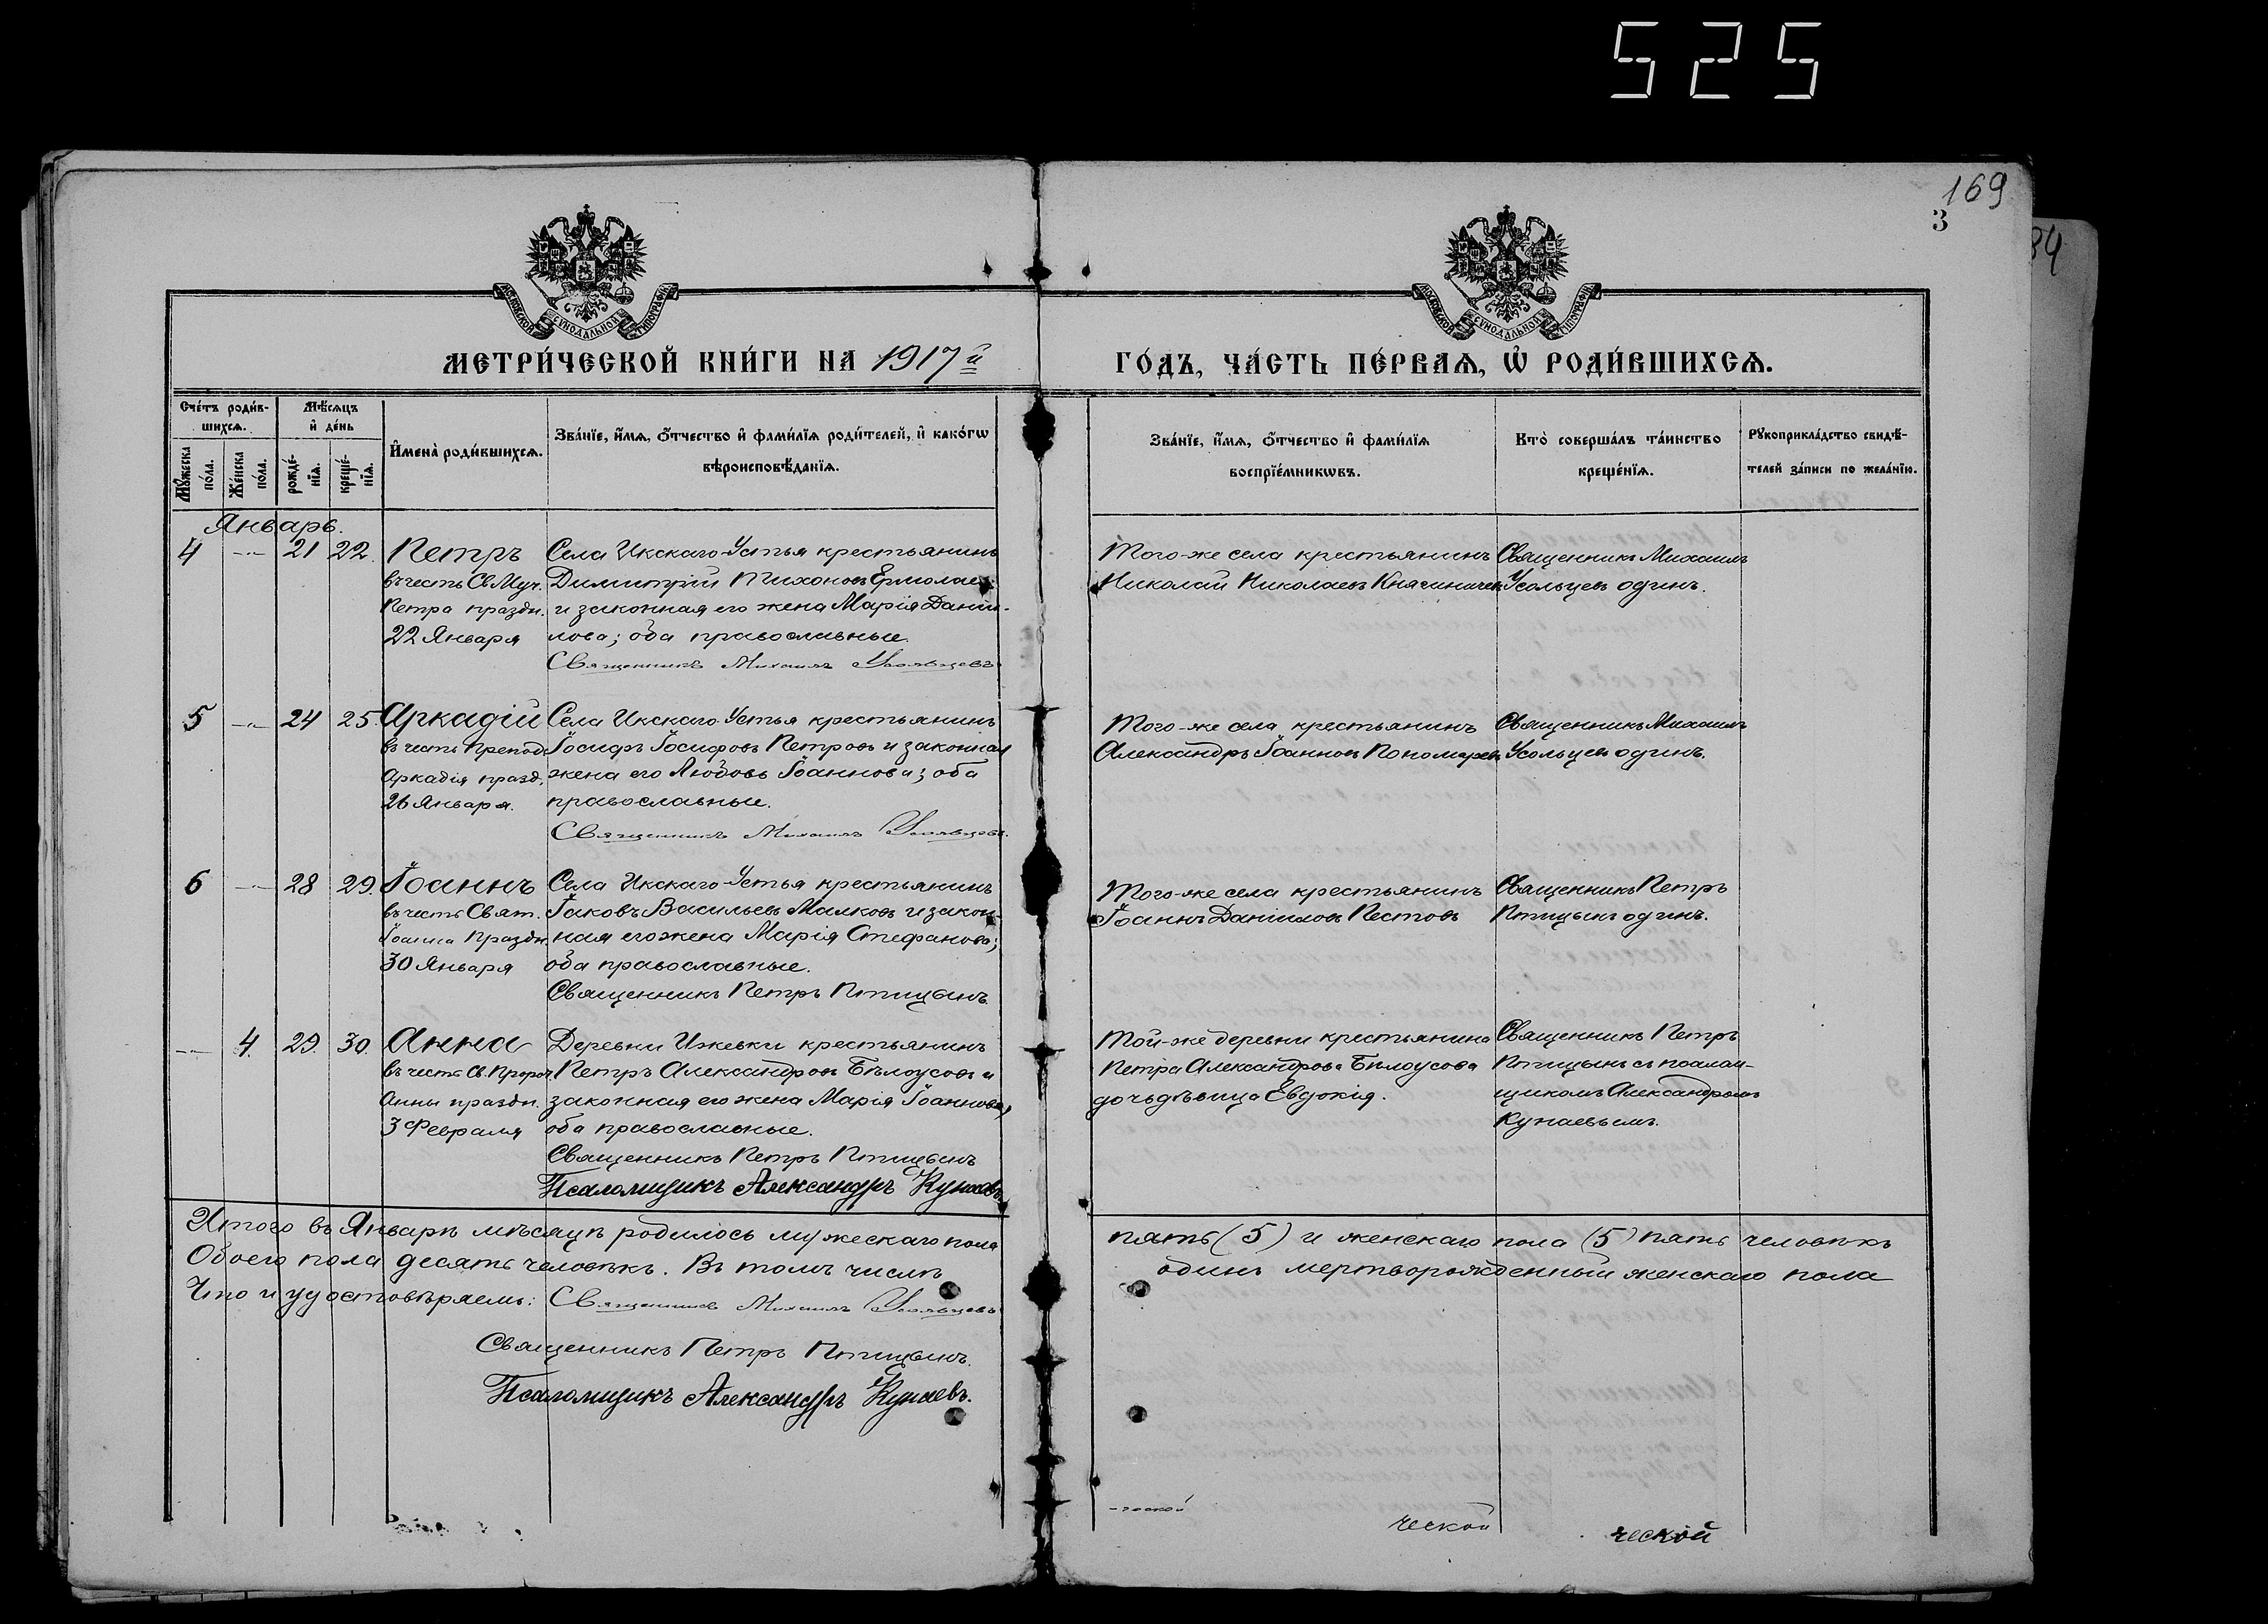 525
169
3
84
МОСКОВСКОЙ СѴНОДАЛЬНОЙ ТИПОГРАФІИ
МОСКОВСКОЙ СѴНОДАЛЬНОЙ ТИПОГРАФІИ
МЕТРИ́ЧЕСКОЙ КНИ́ГИ НА 1917й
ГО́ДЪ, ЧА́СТЬ ПЕ́РВАѦ, Ѡ҆ РОДИ́ВШИХСѦ.
Сче́тъ роди́в-
шихсѧ.
Мꙋ́жеска по́ла.
Же́нска по́ла.
Мѣ́сѧцъ
и҆ де́нь
рожде́-
нїѧ.
креще́-
нїѧ.
И҆мена̀ роди́вшихсѧ.
Зва́нїе, и҆́мѧ, ѻ҆́тчество и҆ фами́лїѧ роди́телей, и҆ како́гѡ
вѣроисповѣ́данїѧ.
Зва́нїе, и҆́мѧ, ѻ҆́тчество и҆ фами́лїѧ
воспрїе́мникѡвъ.
Кто̀ соверша́лъ та́инство
креще́нїѧ.
Рꙋкоприкла́дство свидѣ́-
телей за́писи по жела́нїю.
Январь.
4 -"- 21 22. Петръ
въ честь Св. Муч.
Петра праздн.
22 Января
Села Икскаго-Устья крестьянинъ
Димитрій Тихоновъ Ермолаевъ
и законная его жена Марія Даніи-
лова; оба православные.
Священникъ Михаилъ Усольцевъ
Того-же села крестьянинъ
Николай Николаевъ
Священникъ Михаилъ
Усольцевъ одинъ.
5 -"- 24 25. Аркадій
въ честь Препод.
Аркадія празд.
26 Января.
Села Икскаго-Устья крестьянинъ
Іосифъ Іосифовъ Петровъ и законная
жена его Любовь Іоаннова; оба
православные.
Священникъ Михаилъ Усольцевъ.
Того-же села крестьянинъ
Александръ Іоанновъ Пономаревъ
Священникъ Михаилъ
Усольцев одинъ.
6 -"- 28 29. Іоаннъ
въ честь Свят.
Іоанна праздн.
30 Января
Села Икскаго-Устья крестьянинъ
Іаковъ Васильевъ Малковъ и закон-
ная его жена Марія Стефанова;
оба православные.
Священникъ Петръ Птицынъ.
Того-же села крестьянинъ
Іоаннъ Даніиловъ Пестовъ
Священникъ Петръ
Птицынъ одинъ.
-"- 4. 29. 30. Анна
въ честь Св. Пророч.
Анны праздн.
3 Февраля
Деревни Ижевки крестьянинъ
Петръ Александровъ Бѣлоусовъ и
законная его жена Марія Іоаннова,
оба православные.
Священникъ Петръ Птицынъ
Псаломщикъ Александръ Кунаевъ.
Той-же деревни крестьянина
Петра Александрова Бѣлоусова
дочь дѣвица Евдокія.
Священникъ Петръ
Птицынъ съ псалом-
щикомъ Александромъ
Кунаевымъ.
Итого въ Январѣ мѣсяцѣ родилось мужескаго пола
пять (5) и женскаго пола (5) пять человѣкъ
Обоего пола десять человѣкъ. Въ томъ числѣ
одинъ мертворожденный женскаго пола
Что и удостовѣряемъ: Священникъ Михаилъ Усольцевъ
Священникъ Петръ Птицынъ.
Псаломщикъ Александръ Кунаевъ.
-ческой
ческой
ческой